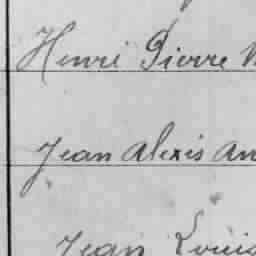 Henri Pierre
Jean Alexis An
Jean Louis